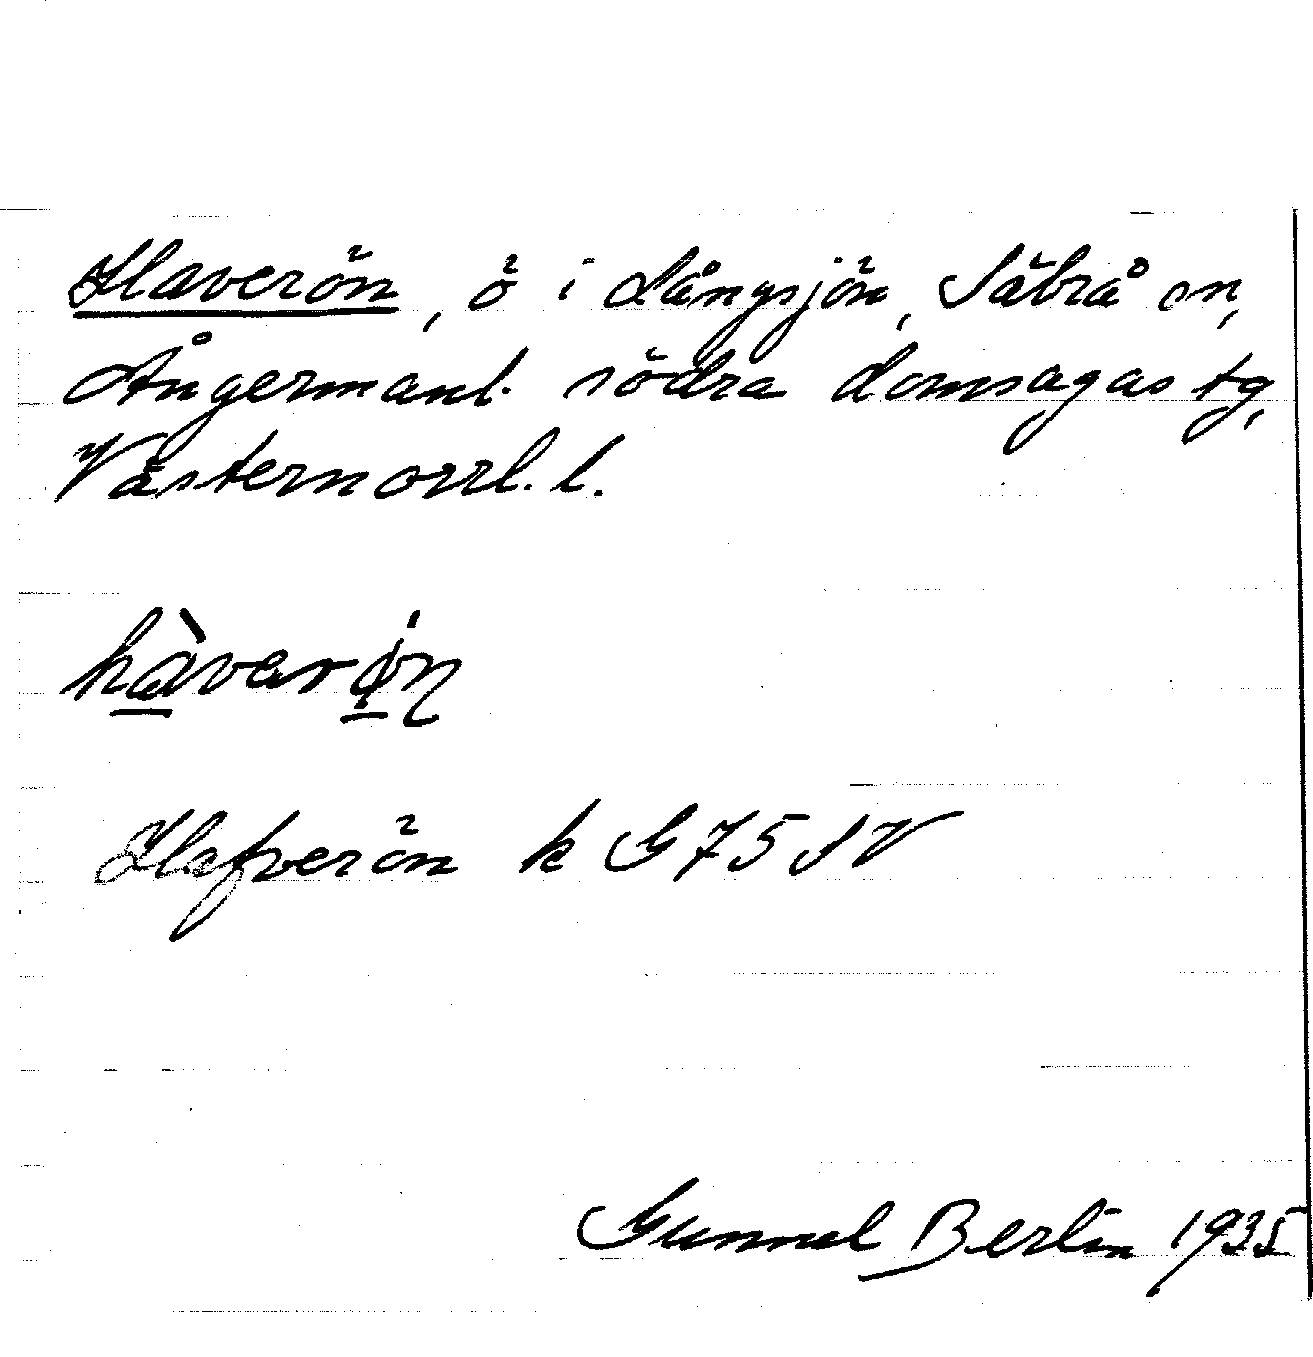 Haverön, ö i Långsjön, Säbrå sn,
Ångermanl. södra domsagas tg,
Västernorrl. l.
hàverø̀n
Hafverön k G 75 SV
Gunnel Berlin 1935